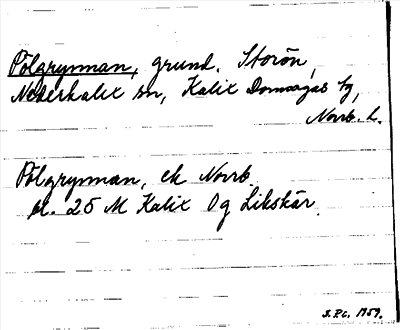 Pölgrynnan, grund. Storön,
Nederkalix sn, Kalix Domsagas tg,
Norrb. L.
Pölgrynnan, ek Norrb.
bl. 25 M Kalix Og Likskär.
S.P.C. 1959.